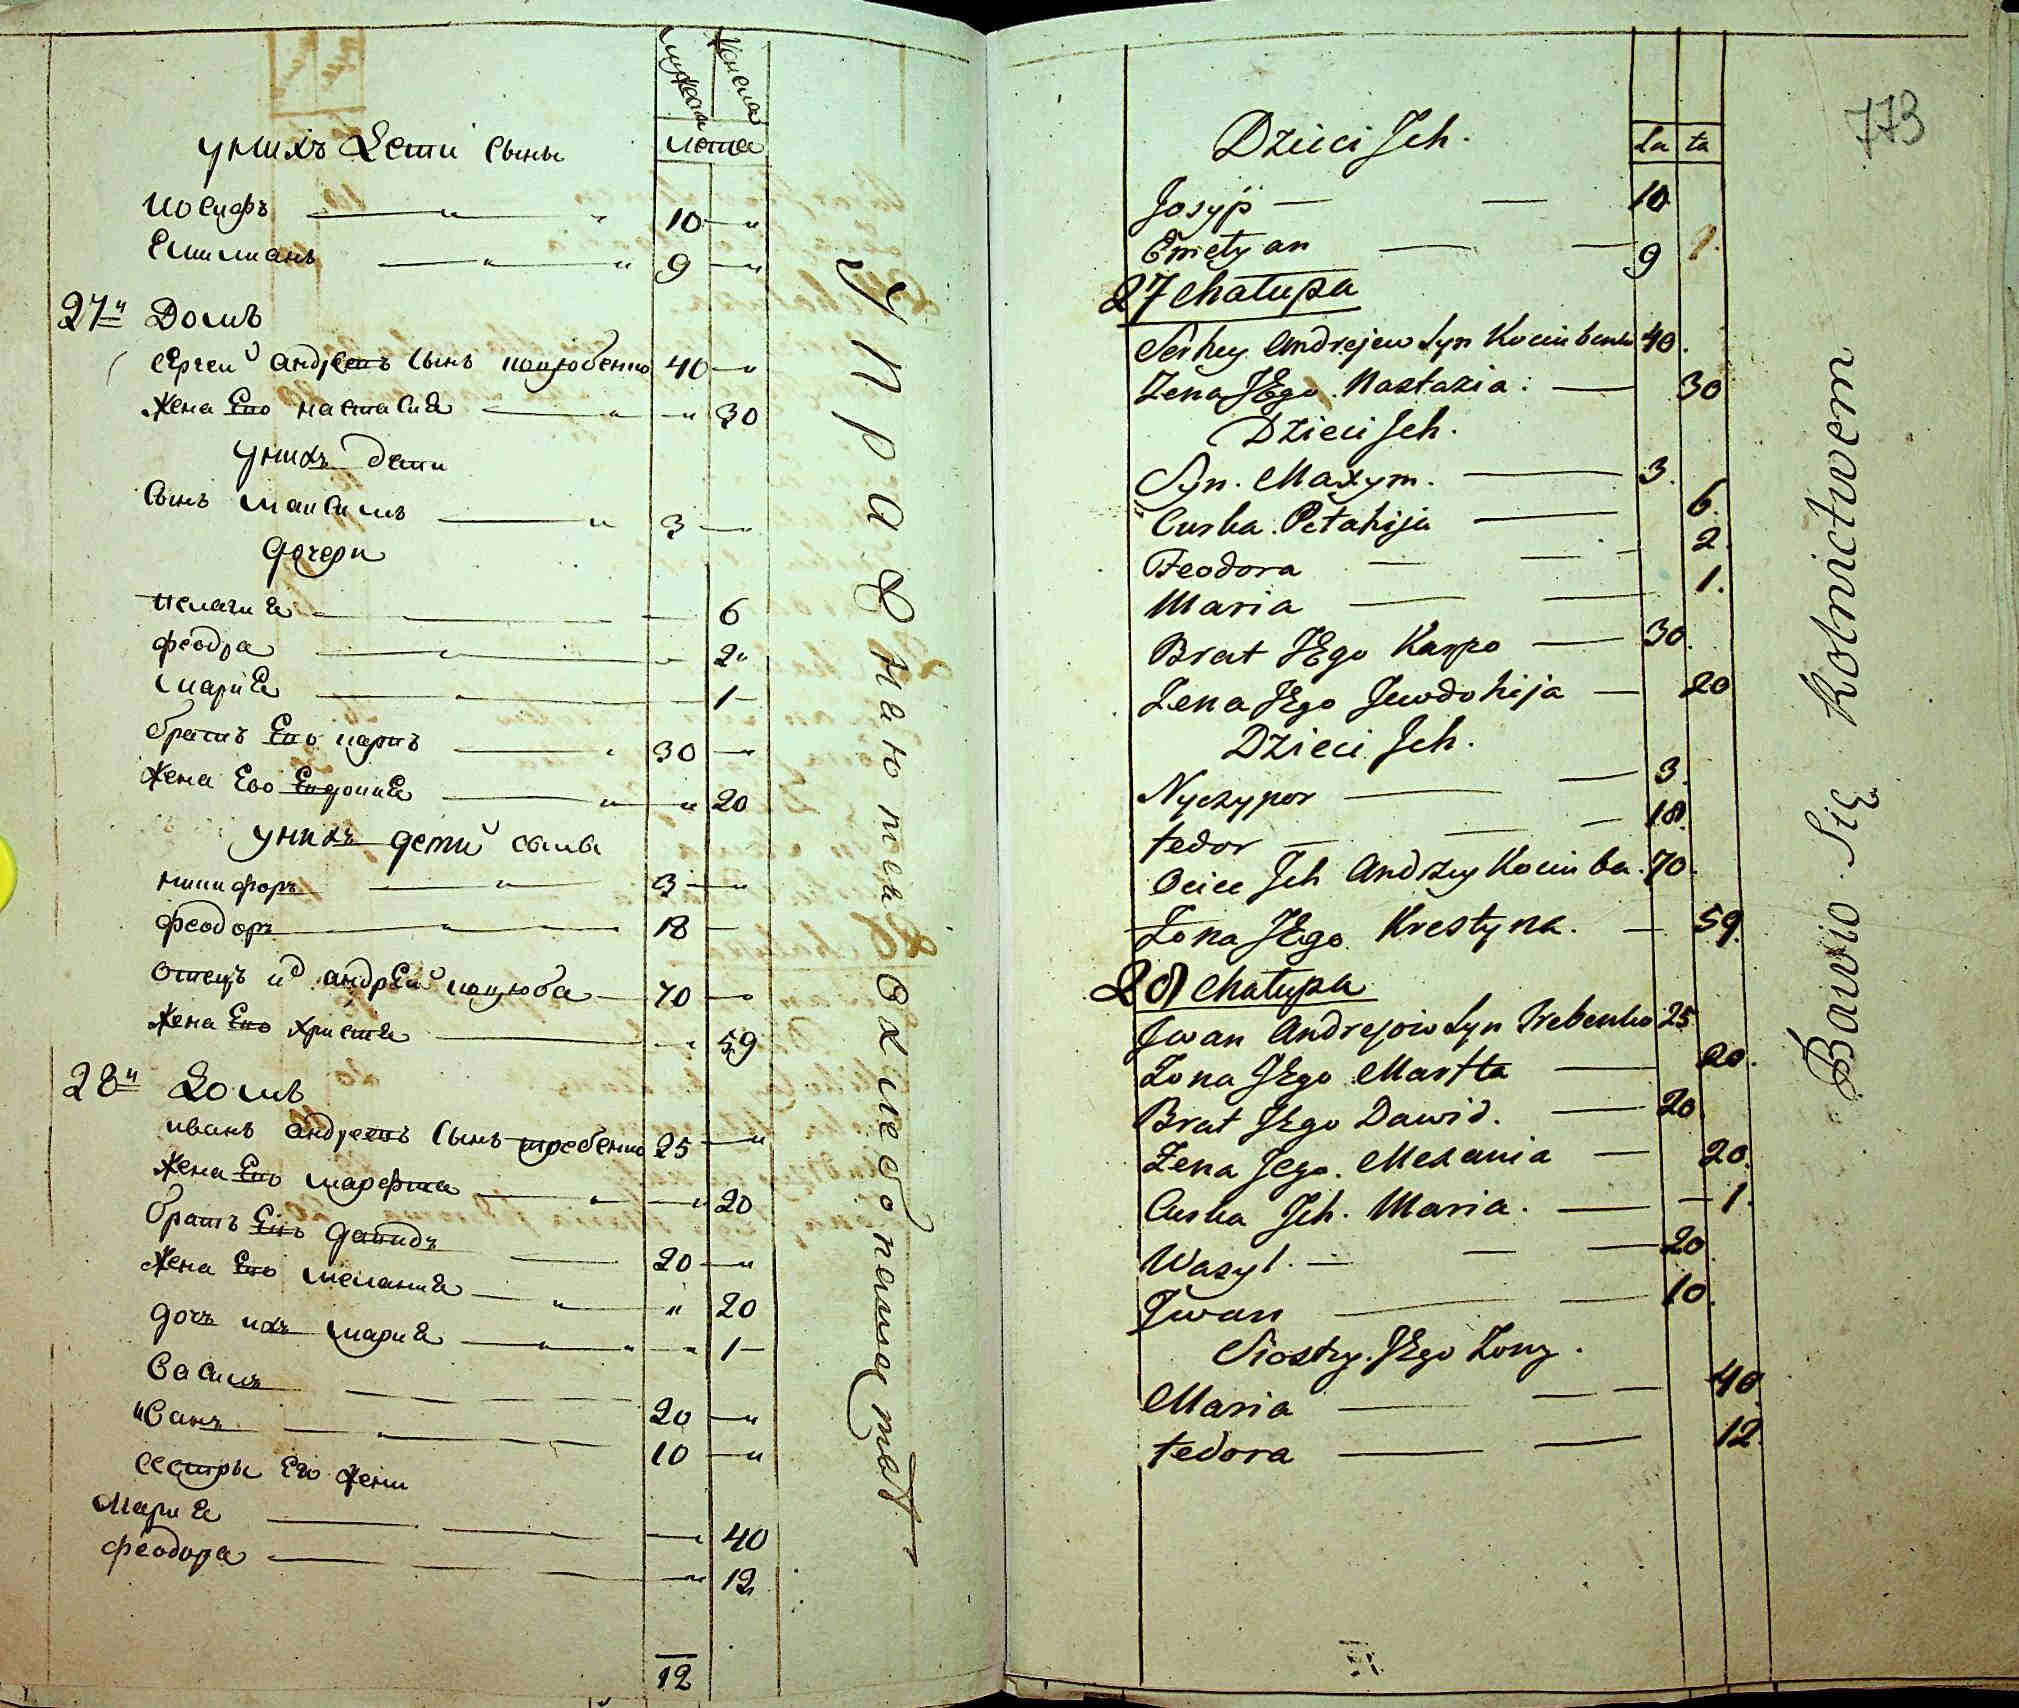 мужеска женска
лета
у нихъ Дети сыны
иосифъ 10
Емилианъ 9
27й Домъ
сергей андреевъ сынъ коцюбенко 40
жена Ево настасия 30
у нихъ дети
сынъ максимъ 3
дочери
пелагия 6
феодра 2
мария 1
братъ Ево карпъ 30
жена Ево Евдокия 20
у нихъ дети сыны
никифоръ 3
феодоръ 18
отецъ их андрей коцюба 70
жена Ево христя 59
28й Домъ
иванъ андреевъ сынъ требенко 25
жена Ево марфта 20
братъ Ево давидъ 20
жена Ево мелания 20
дочъ ихъ мария 1
василь 20
иванъ 10
сестры Его жени
Мария 40
феодора 12
12
Упражнаются в хлебопашества
773
La ta
Dzieci Jch.
Josyp 10
Emelyan 9
27 Chatupa
Serhey Andrejew Syn Kociubenko 40.
Zena JEgo Nastazia 30
Dzieci Jch.
Syn. Maxym. 3.
Curka Petahija 6.
Feodora 2.
Maria 1.
Brat JEgo Karpo 30.
Zena JEgo Jewdohija 20
Dzieci Jch.
Nyczypor 3.
fedor 18.
Ociec Jch Andrzey Kociuba 70.
Zona JEgo Krestyna. 59.
28 Chatupa
Jwan Andrejow Syn Trebenko 25
Zona JEgo Martta 20.
Brat JEgo Dawid. 20
Zena Jego. Melania 20.
Curka Jch. Maria. 1.
Wasyl. 20
Jwan 10.
Siostry JEgo Zony.
Maria 40
fedora 12.
Bawio Się Rolnictwem